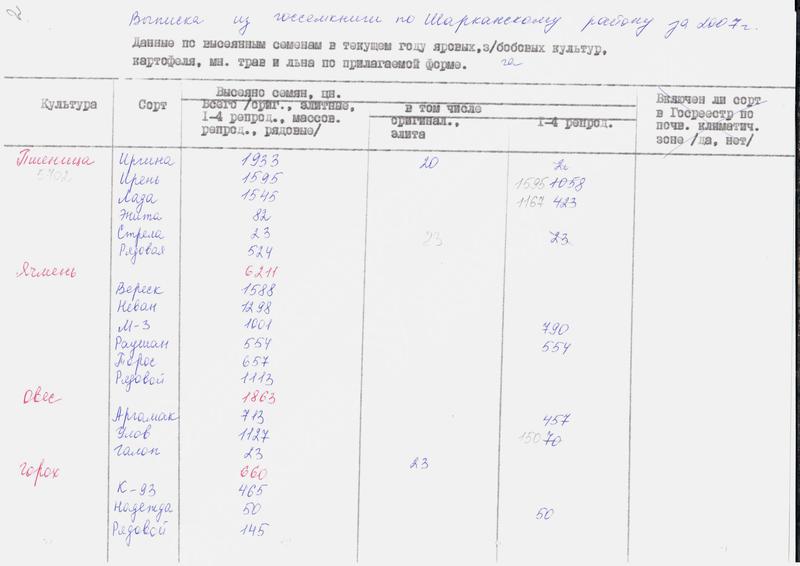 2
Выписка из госсемкниги по Шарканскому району за 2007г.
Данные по высеянным семенам в текущем году яровых,з/бобовых культур,
картофеля, мн. трав и льна по прилагаемой форме. га
Культура Сорт Высеяно семян, цн. Включен ли сорт
Всего /ориг., элитные, в том числе в Госреестр по
I-4 репрод., массов. оригинал., I-4 репрод. почв. климатич.
репрод., рядовые/ элита зоне /да, нет/
Пшеница Иргина 1933 20
5702 Ирень 1595 1595 1058
Лаза 1545 1167 423
Энита 82
Стрела 23 23 23
Рядовая 524
Ячмень 6211
Вереск 1588
Неван 1298
М-3 1001 790
Раушан 554 554
Торос 657
Рядовой 1113
Овес 1863
Аргамак 713 457
Улов 1127 150 70
Галоп 23 23
горох 660
К-93 465
Надежда 50 50
Рядовой 145